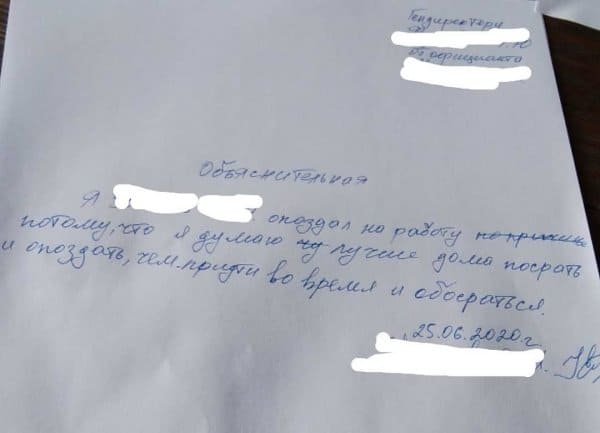 Гендиректору
От официанта
Объяснительная
Я опоздал на работу по причине
потому, что я думаю лучше дома посрать
и опоздать, чем придти во время и обосраться.
25.06.2020 г.